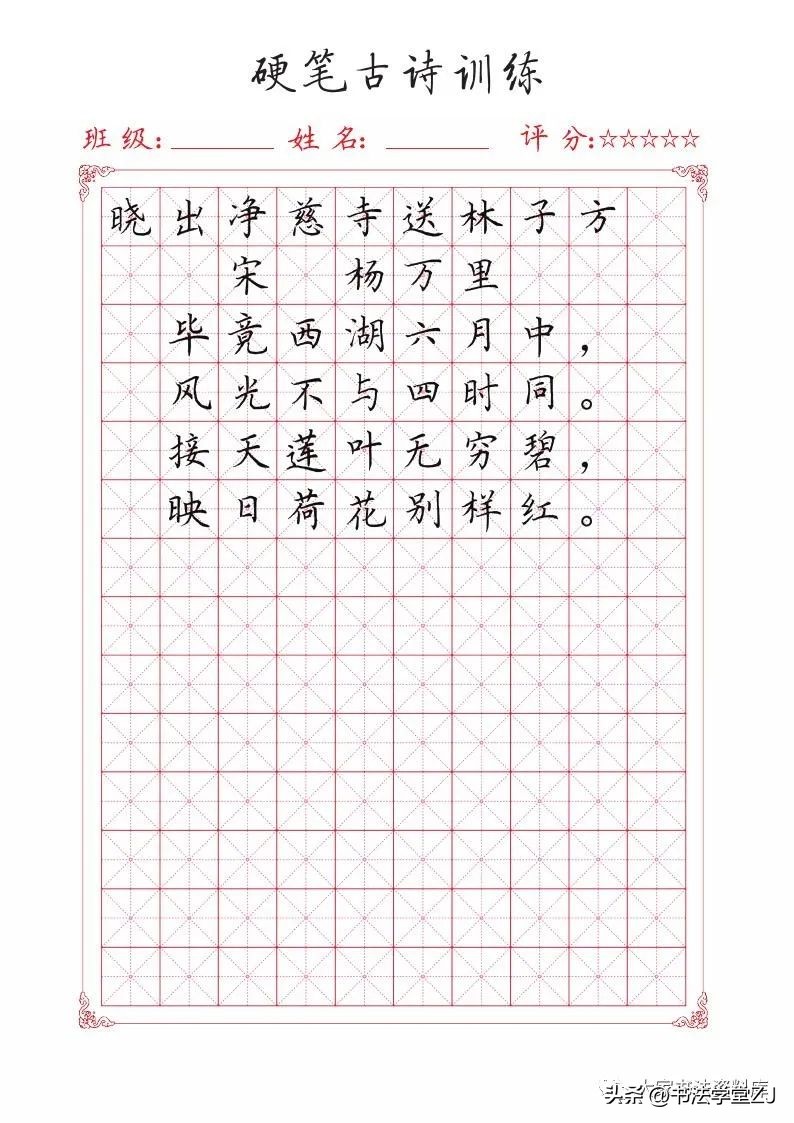 硬笔古诗训练
班级:________ 姓名:________ 评分:☆☆☆☆☆
晓出净慈寺送林子方
宋 杨万里
毕竟西湖六月中，
风光不与四时同。
接天莲叶无穷碧，
映日荷花别样红。
大家书法资料库
头条@书法学堂ZJ